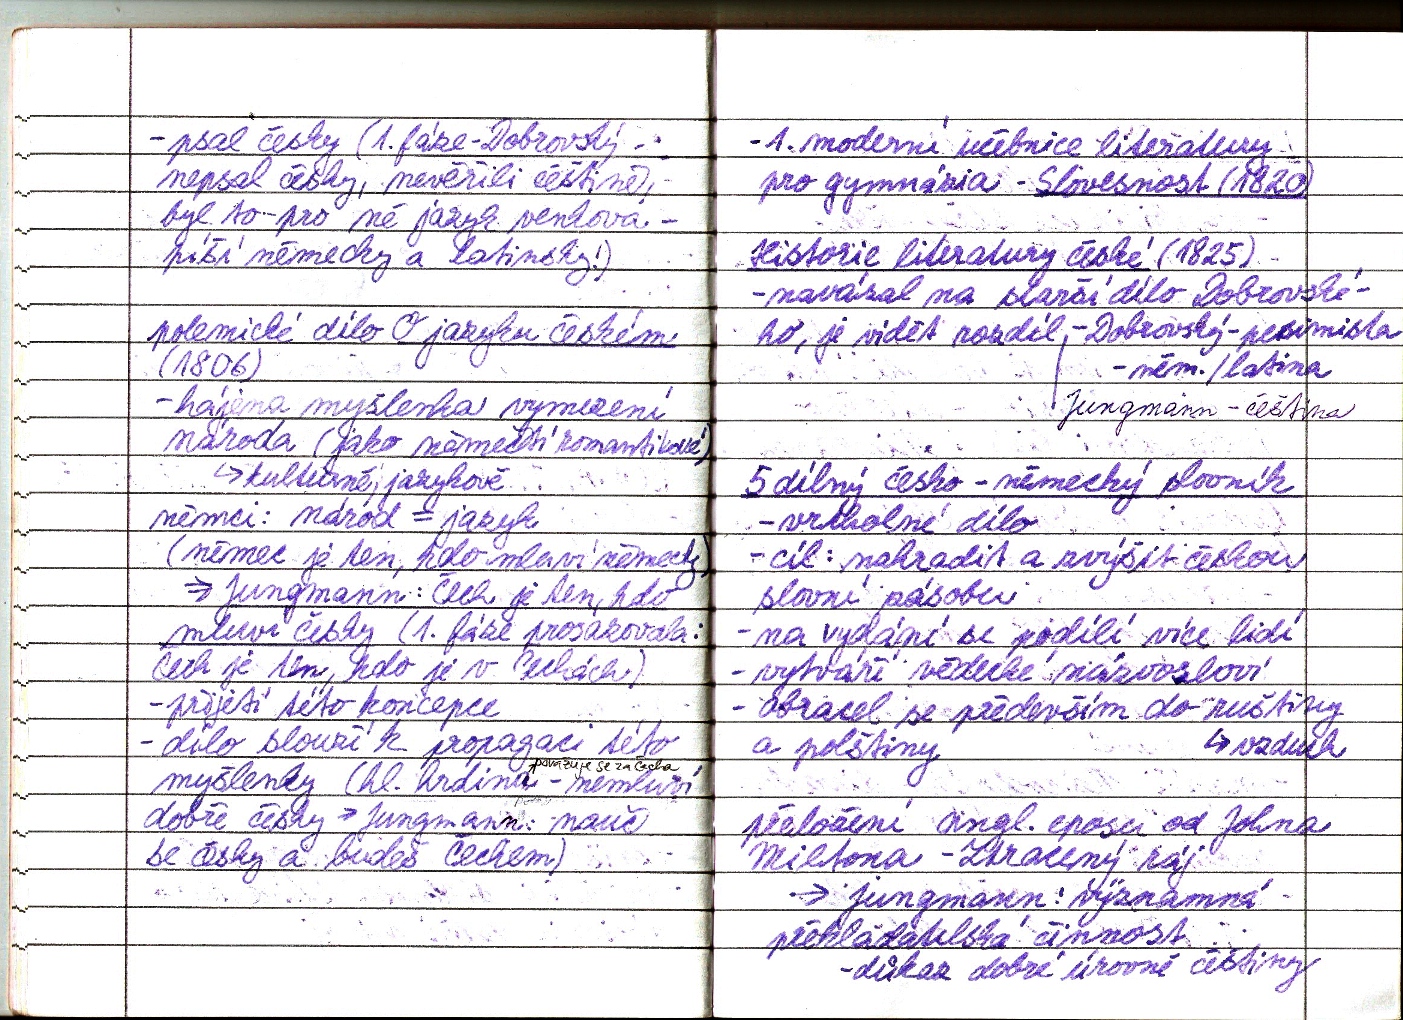 - psal česky (1. fáze - Dobrovský -
nepsal česky, nevěřili češtině,
byl to pro ně jazyk venkova -
píší německy a latinsky!)
polemické dílo O jazyku českém
(1806)
- hájena myšlenka vymezení
národa (jako němečtí romantikové)
↳ kulturně, jazykově
němci: národ = jazyk
(němec je ten, kdo mluví německy)
⇒ Jungmann: Čech je ten, kdo
mluví česky (1. fáze prosazovala:
Čech je ten, kdo je v Čechách)
- přijetí této koncepce
- dílo slouží k propagaci této
považuje se za Čecha
myšlenky (hl. hrdina - nemluví
dobře česky → Jungmann: nauč
se česky a budeš Čechem)
- 1. moderní učebnice literatury
pro gymnázia - Slovesnost (1820)
Historie literatury české (1825)
- navázal na starší dílo Dobrovské-
ho, je vidět rozdíl - Dobrovský - pesimista
- něm. / latina
Jungmann - čeština
5 dílný česko - německý slovník
- vrcholné dílo
- cíl: nahradit a zvýšit českou
slovní zásobu
- na vydání se podílí více lidí
- vytváří vědecké názvosloví
- obracel se především do ruštiny
a polštiny ↳ vzduch
přeložení angl. eposu od Johna
Miltona - Ztracený ráj
→ Jungmann: významná
překladatelská činnost
- důkaz dobré úrovně češtiny